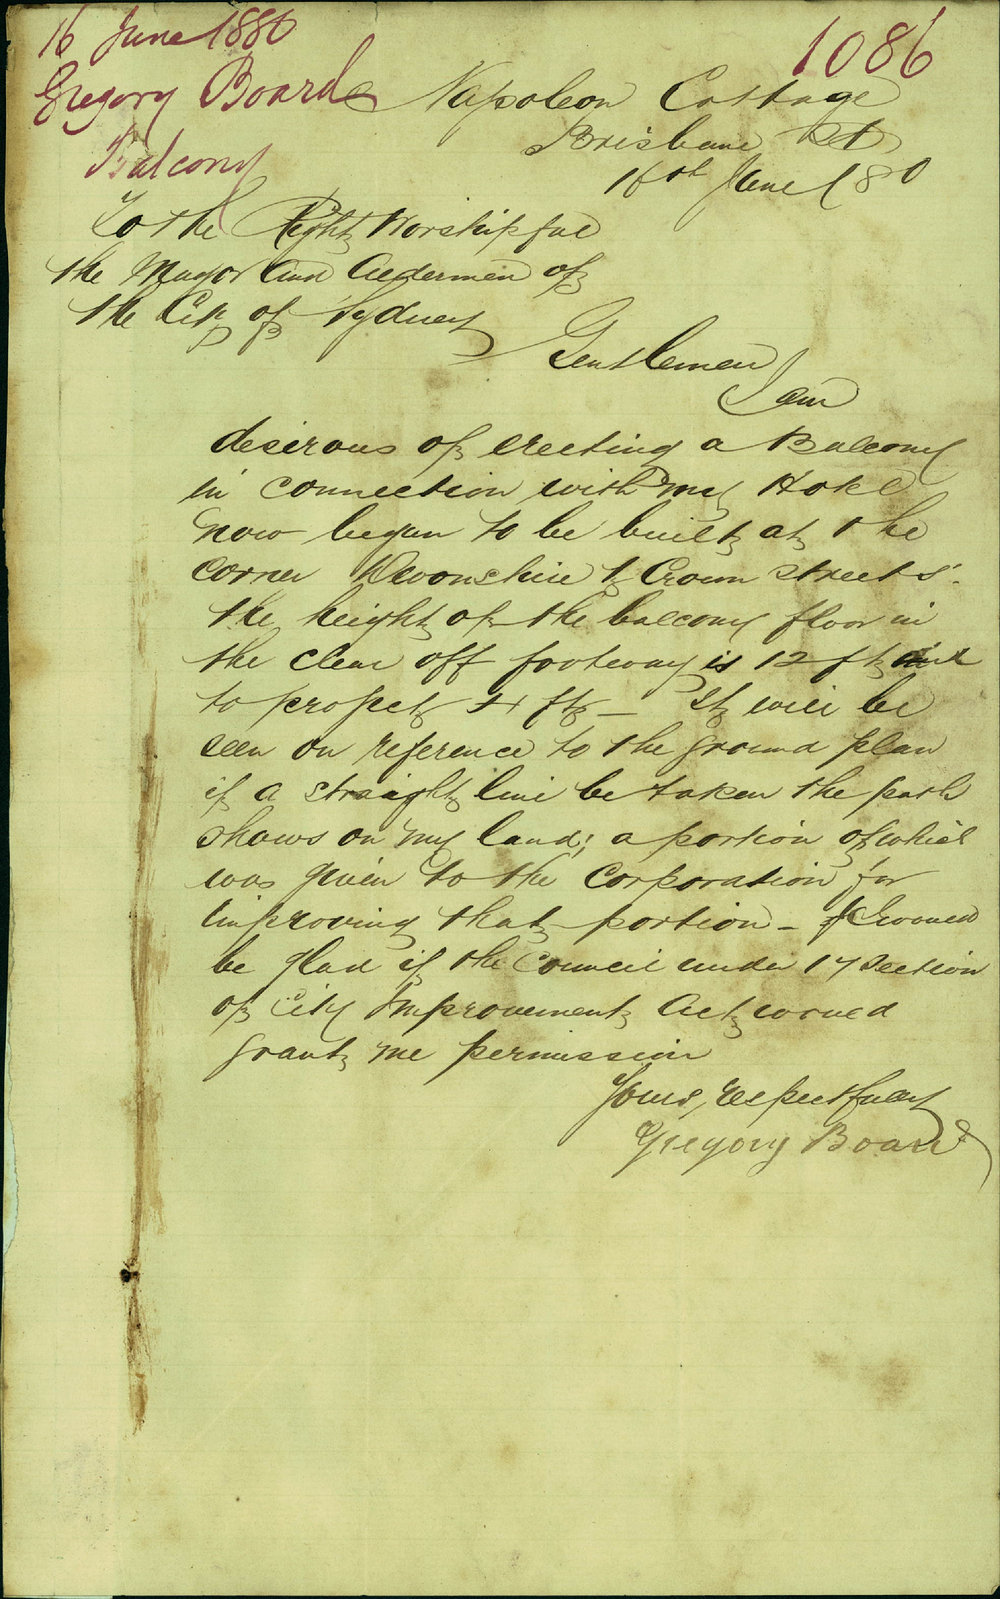 16 June 1880
1086
Gregory Board
Balcony
Napoleon Cottage
Brisbane St
16th June /80
To the Right Worshipful
the Mayor and Aldermen of
the City of Sydney
Gentlemen
I am
desirous of erecting a Balcony
in connection with my Hotel
now began to be built at the
corner Devonshire & Crown streets.
the height of the balcony floor in
the clear off footway is 12 ft and
to project 4 ft – It will be
seen on reference to the ground plan
if a straight line be taken the path
shows on my land; a portion of which
was given to the Corporation for
improving that portion – I would
be glad if the Council under 17 Section
of City Improvement Act would
grant me permission
Yours, respectfully
Gregory Board